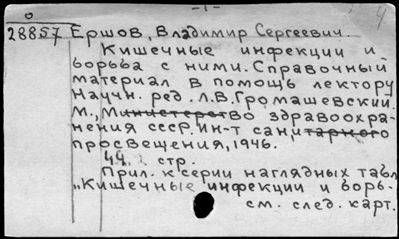 -1- 4
0
28857 Ершов, Владимир Сергеевич
Кишечные инфекции и
борьба с ними. Справочный
материал в помощь лектору
Научн. ред. Л.В. Громашевский.
М., Министерство здравоохра-
нения СССР. Ин-т санитарного
просвещения, 1946.
44 стр.
Прил. к серии наглядных табл.
„Кишечные инфекции и борь-
см. след. карт.